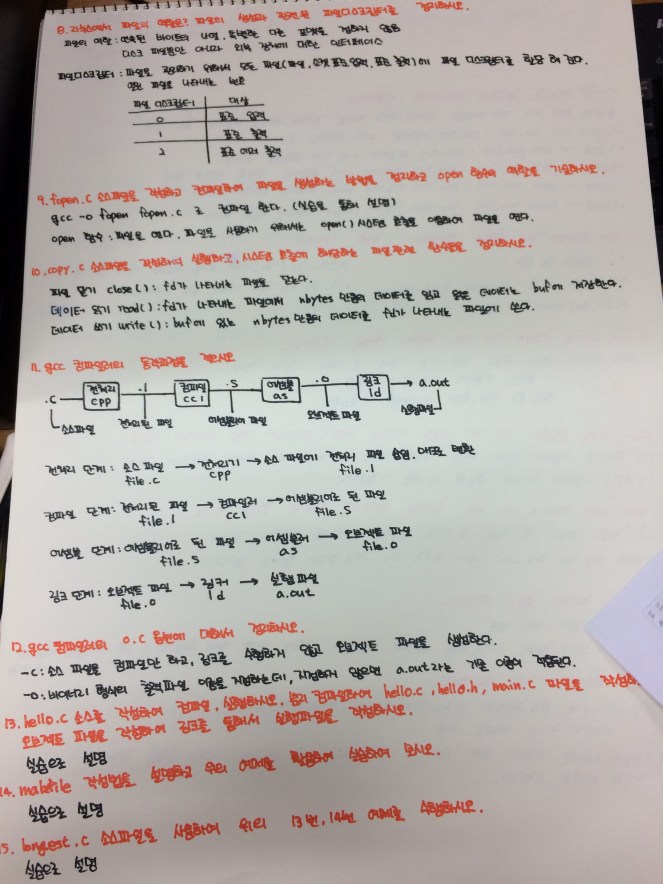 8. 리눅스에서 파일의 역할은? 파일의 생성과 관련된 파일디스크립터를 정리하시오.
파일의 역할 : 연속된 바이트의 나열, 특별한 다른 포맷을 정하지 않음
디스크 파일뿐만 아니라 외부 장치에 대한 인터페이스
파일디스크립터 : 파일을 관리하기 위해서 모든 파일(파일, 소켓, 표준 입력, 표준 출력)에 파일 디스크립터를 할당 해 준다.
열린 파일을 나타내는 번호
파일 디스크립터 대상
0 표준 입력
1 표준 출력
2 표준 에러 출력
9. fopen.c 소스파일을 작성하고 컴파일하여 파일을 생성하는 방법을 정리하고 open 함수의 역할을 기술하시오.
gcc -o fopen fopen.c 로 컴파일 한다. (실습을 통해 설명)
open 함수 : 파일을 연다. 파일을 사용하기 위해서는 open() 시스템 호출을 이용하여 파일을 연다.
10. copy.c 소스파일을 작성하여 실행하고, 시스템 호출에 해당하는 파일관련 함수들을 정리하시오.
파일 닫기 close() : fd가 나타내는 파일을 닫는다.
데이터 읽기 read() : fd가 나타내는 파일에서 nbytes 만큼의 데이터를 읽고 읽은 데이터는 buf에 저장한다.
데이터 쓰기 write() : buf에 있는 nbytes 만큼의 데이터를 fd가 나타내는 파일에 쓴다.
11. gcc 컴파일러의 동작과정을 적으시오
.c 전처리 cpp .i 컴파일 cc1 .s 어셈블 as .o 링크 ld a.out
소스파일 전처리된 파일 어셈블리어 파일 오브젝트 파일 실행파일
전처리 단계 : 소스 파일 → 전처리기 → 소스 파일에 전처리 파일 삽입, 매크로 변환
file.c cpp file.i
컴파일 단계 : 전처리된 파일 → 컴파일러 → 어셈블리어로 된 파일
file.i cc1 file.s
어셈블 단계 : 어셈블리어로 된 파일 → 어셈블러 → 오브젝트 파일
file.s as file.o
링크 단계 : 오브젝트 파일 → 링커 → 실행 파일
file.o ld a.out
12. gcc 컴파일러의 o, c 옵션에 대해서 정리하시오.
-c : 소스 파일을 컴파일만 하고, 링크를 수행하지 않고 오브젝트 파일을 생성한다.
-o : 바이너리 형식의 출력파일 이름을 지정하는데, 지정하지 않으면 a.out라는 기본 이름이 적용된다.
13. hello.c 소스를 작성하여 컴파일, 실행하시오. 분리 컴파일하여 hello.c, hello.h, main.c 파일을 작성하고
오브젝트 파일을 작성하여 링크를 통해서 실행파일을 작성하시오.
실습으로 설명
14. makefile 작성법을 설명하고 우리 예제를 활용하여 실습하여 보시오.
실습으로 설명
15. longest.c 소스파일을 사용하여 위의 13번, 14번 예제를 수행하시오.
실습으로 설명